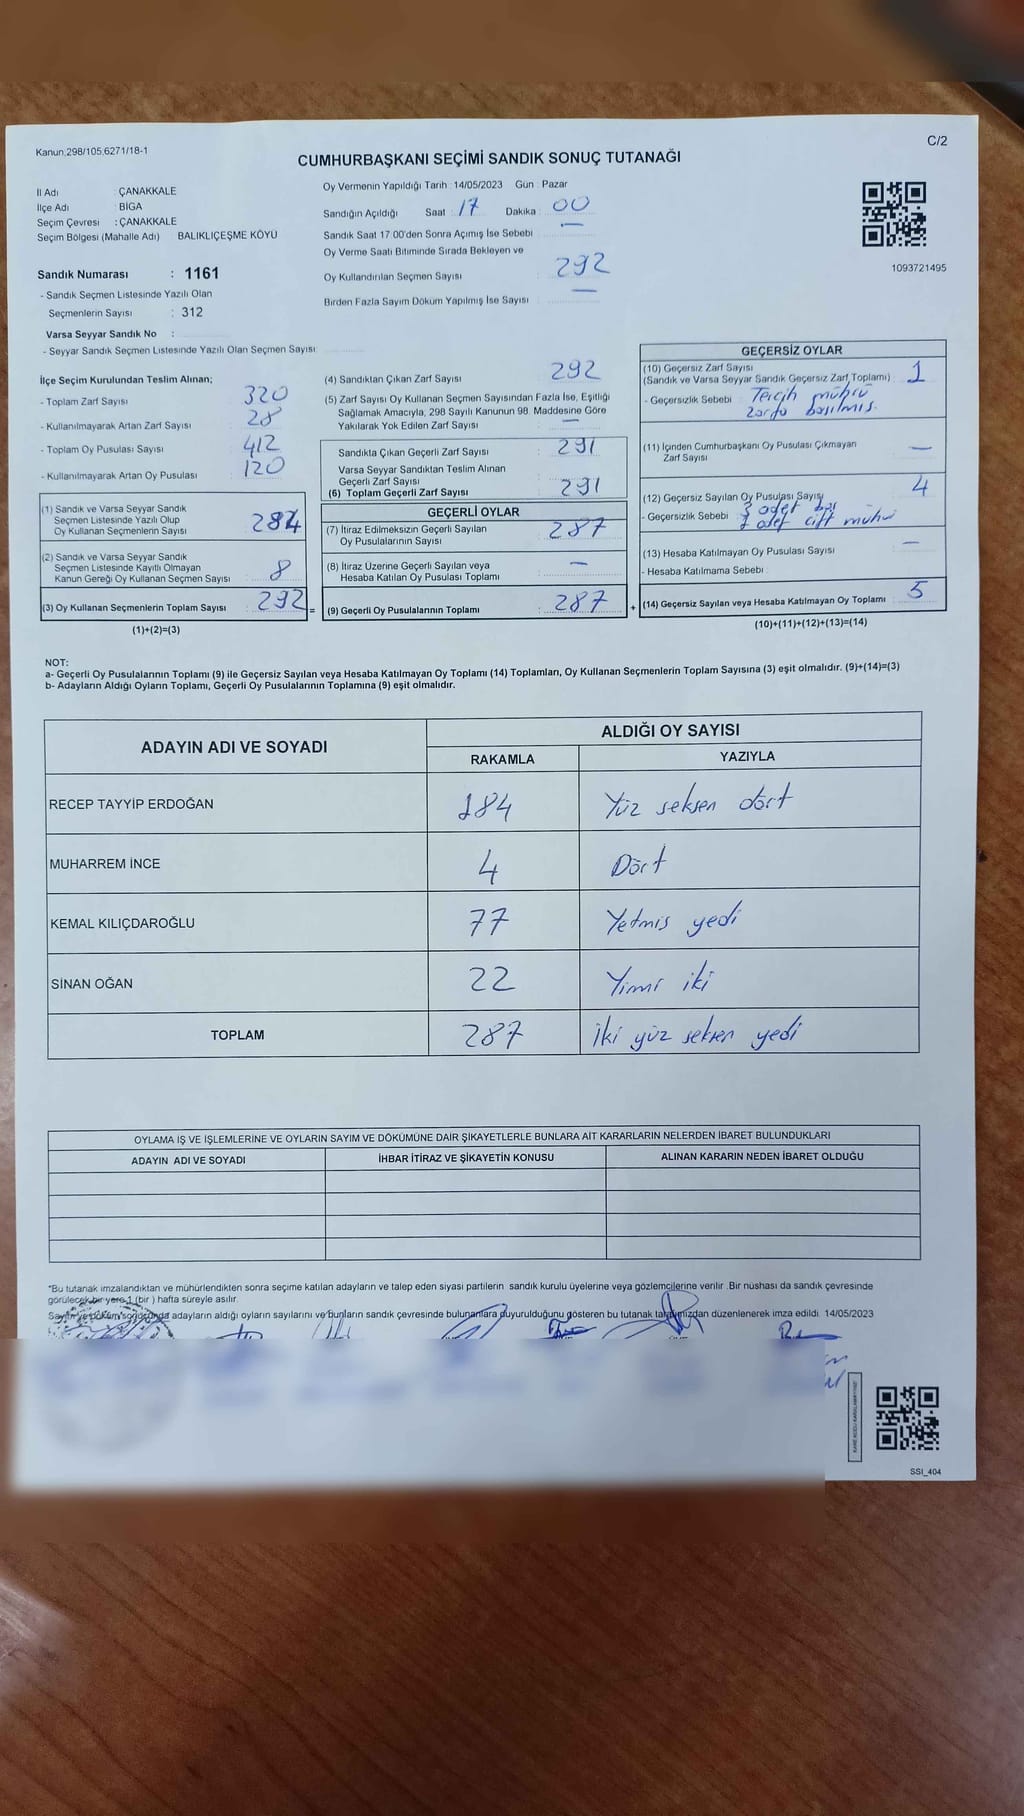 Kanun.298/105,6271/18-1
C/2
CUMHURBAŞKANI SEÇİMİ SANDIK SONUÇ TUTANAĞI
İl Adı : ÇANAKKALE
İlçe Adı : BİGA
Seçim Çevresi : ÇANAKKALE
Seçim Bölgesi (Mahalle Adı) BALIKLIÇEŞME KÖYÜ
Sandık Numarası : 1161
- Sandık Seçmen Listesinde Yazılı Olan
Seçmenlerin Sayısı : 312
Varsa Seyyar Sandık No :
- Seyyar Sandık Seçmen Listesinde Yazılı Olan Seçmen Sayısı:
Oy Vermenin Yapıldığı Tarih : 14/05/2023 Gün : Pazar
Sandığın Açıldığı Saat : 17 Dakika : 00
Sandık Saat 17.00'den Sonra Açımış İse Sebebi : —
Oy Verme Saati Bitiminde Sırada Bekleyen ve
Oy Kullandırılan Seçmen Sayısı : 292
Birden Fazla Sayım Döküm Yapılmış İse Sayısı : —
1093721495
İlçe Seçim Kurulundan Teslim Alınan;
- Toplam Zarf Sayısı : 320
- Kullanılmayarak Artan Zarf Sayısı : 28
- Toplam Oy Pusulası Sayısı : 412
- Kullanılmayarak Artan Oy Pusulası : 120
(1) Sandık ve Varsa Seyyar Sandık
Seçmen Listesinde Yazılı Olup
Oy Kullanan Seçmenlerin Sayısı : 284
(2) Sandık ve Varsa Seyyar Sandık
Seçmen Listesinde Kayıtlı Olmayan
Kanun Gereği Oy Kullanan Seçmen Sayısı : 8
(3) Oy Kullanan Seçmenlerin Toplam Sayısı : 292 =
(1)+(2)=(3)
(4) Sandıktan Çıkan Zarf Sayısı : 292
(5) Zarf Sayısı Oy Kullanan Seçmen Sayısından Fazla İse, Eşitliği
Sağlamak Amacıyla, 298 Sayılı Kanunun 98. Maddesine Göre
Yakılarak Yok Edilen Zarf Sayısı : —
Sandıkta Çıkan Geçerli Zarf Sayısı : 291
Varsa Seyyar Sandıktan Teslim Alınan
Geçerli Zarf Sayısı
(6) Toplam Geçerli Zarf Sayısı : 291
GEÇERLİ OYLAR
(7) İtiraz Edilmeksizin Geçerli Sayılan
Oy Pusulalarının Sayısı : 287
(8) İtiraz Üzerine Geçerli Sayılan veya
Hesaba Katılan Oy Pusulası Toplamı : —
(9) Geçerli Oy Pusulalarının Toplamı : 287 +
GEÇERSİZ OYLAR
(10) Geçersiz Zarf Sayısı
(Sandık ve Varsa Seyyar Sandık Geçersiz Zarf Toplamı) : 1
- Geçersizlik Sebebi : Tercih mührü
zarfa basılmış.
(11) İçinden Cumhurbaşkanı Oy Pusulası Çıkmayan
Zarf Sayısı : —
(12) Geçersiz Sayılan Oy Pusulası Sayısı : 4
- Geçersizlik Sebebi : 3 adet boş
1 adet çift mühür
(13) Hesaba Katılmayan Oy Pusulası Sayısı : —
- Hesaba Katılmama Sebebi :
(14) Geçersiz Sayılan veya Hesaba Katılmayan Oy Toplamı : 5
(10)+(11)+(12)+(13)=(14)
NOT:
a- Geçerli Oy Pusulalarının Toplamı (9) ile Geçersiz Sayılan veya Hesaba Katılmayan Oy Toplamı (14) Toplamları, Oy Kullanan Seçmenlerin Toplam Sayısına (3) eşit olmalıdır. (9)+(14)=(3)
b- Adayların Aldığı Oyların Toplamı, Geçerli Oy Pusulalarının Toplamına (9) eşit olmalıdır.
ADAYIN ADI VE SOYADI ALDIĞI OY SAYISI
RAKAMLA YAZIYLA
RECEP TAYYİP ERDOĞAN 184 Yüz seksen dört
MUHARREM İNCE 4 Dört
KEMAL KILIÇDAROĞLU 77 Yetmiş yedi
SİNAN OĞAN 22 Yirmi iki
TOPLAM 287 İki yüz seksen yedi
OYLAMA İŞ VE İŞLEMLERİNE VE OYLARIN SAYIM VE DÖKÜMÜNE DAİR ŞİKAYETLERLE BUNLARA AİT KARARLARIN NELERDEN İBARET BULUNDUKLARI
ADAYIN ADI VE SOYADI İHBAR İTİRAZ VE ŞİKAYETİN KONUSU ALINAN KARARIN NEDEN İBARET OLDUĞU
*Bu tutanak imzalandıktan ve mühürlendikten sonra seçime katılan adayların ve talep eden siyasi partilerin sandık kurulu üyelerine veya gözlemcilerine verilir .Bir nüshası da sandık çevresinde
görülecek bir yere 1 (bir ) hafta süreyle asılır.
Sayım ve döküm sonucunda adayların aldığı oyların sayılarını ve bunların sandık çevresinde bulunanlara duyurulduğunu gösteren bu tutanak tarafımızdan düzenlenerek imza edildi. 14/05/2023
SSI_404